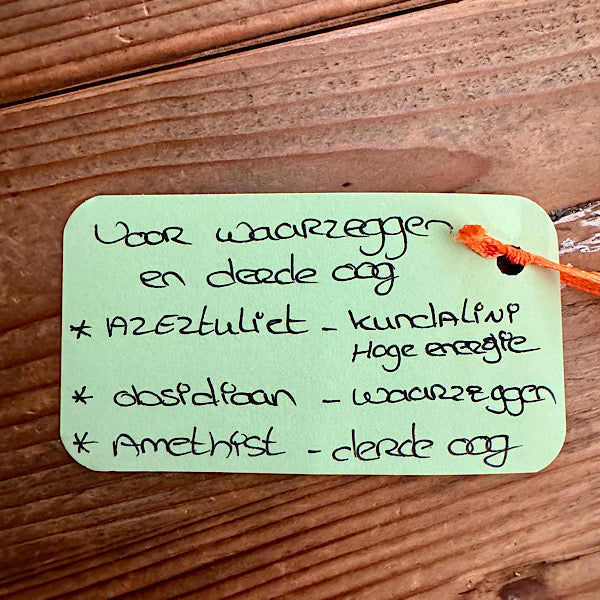 Voor waarzeggen
en derde oog
* AZEZtuliet - kundALiNi
Hoge energie
* obsidiaan - waarzeggen
* Amethist - derde oog